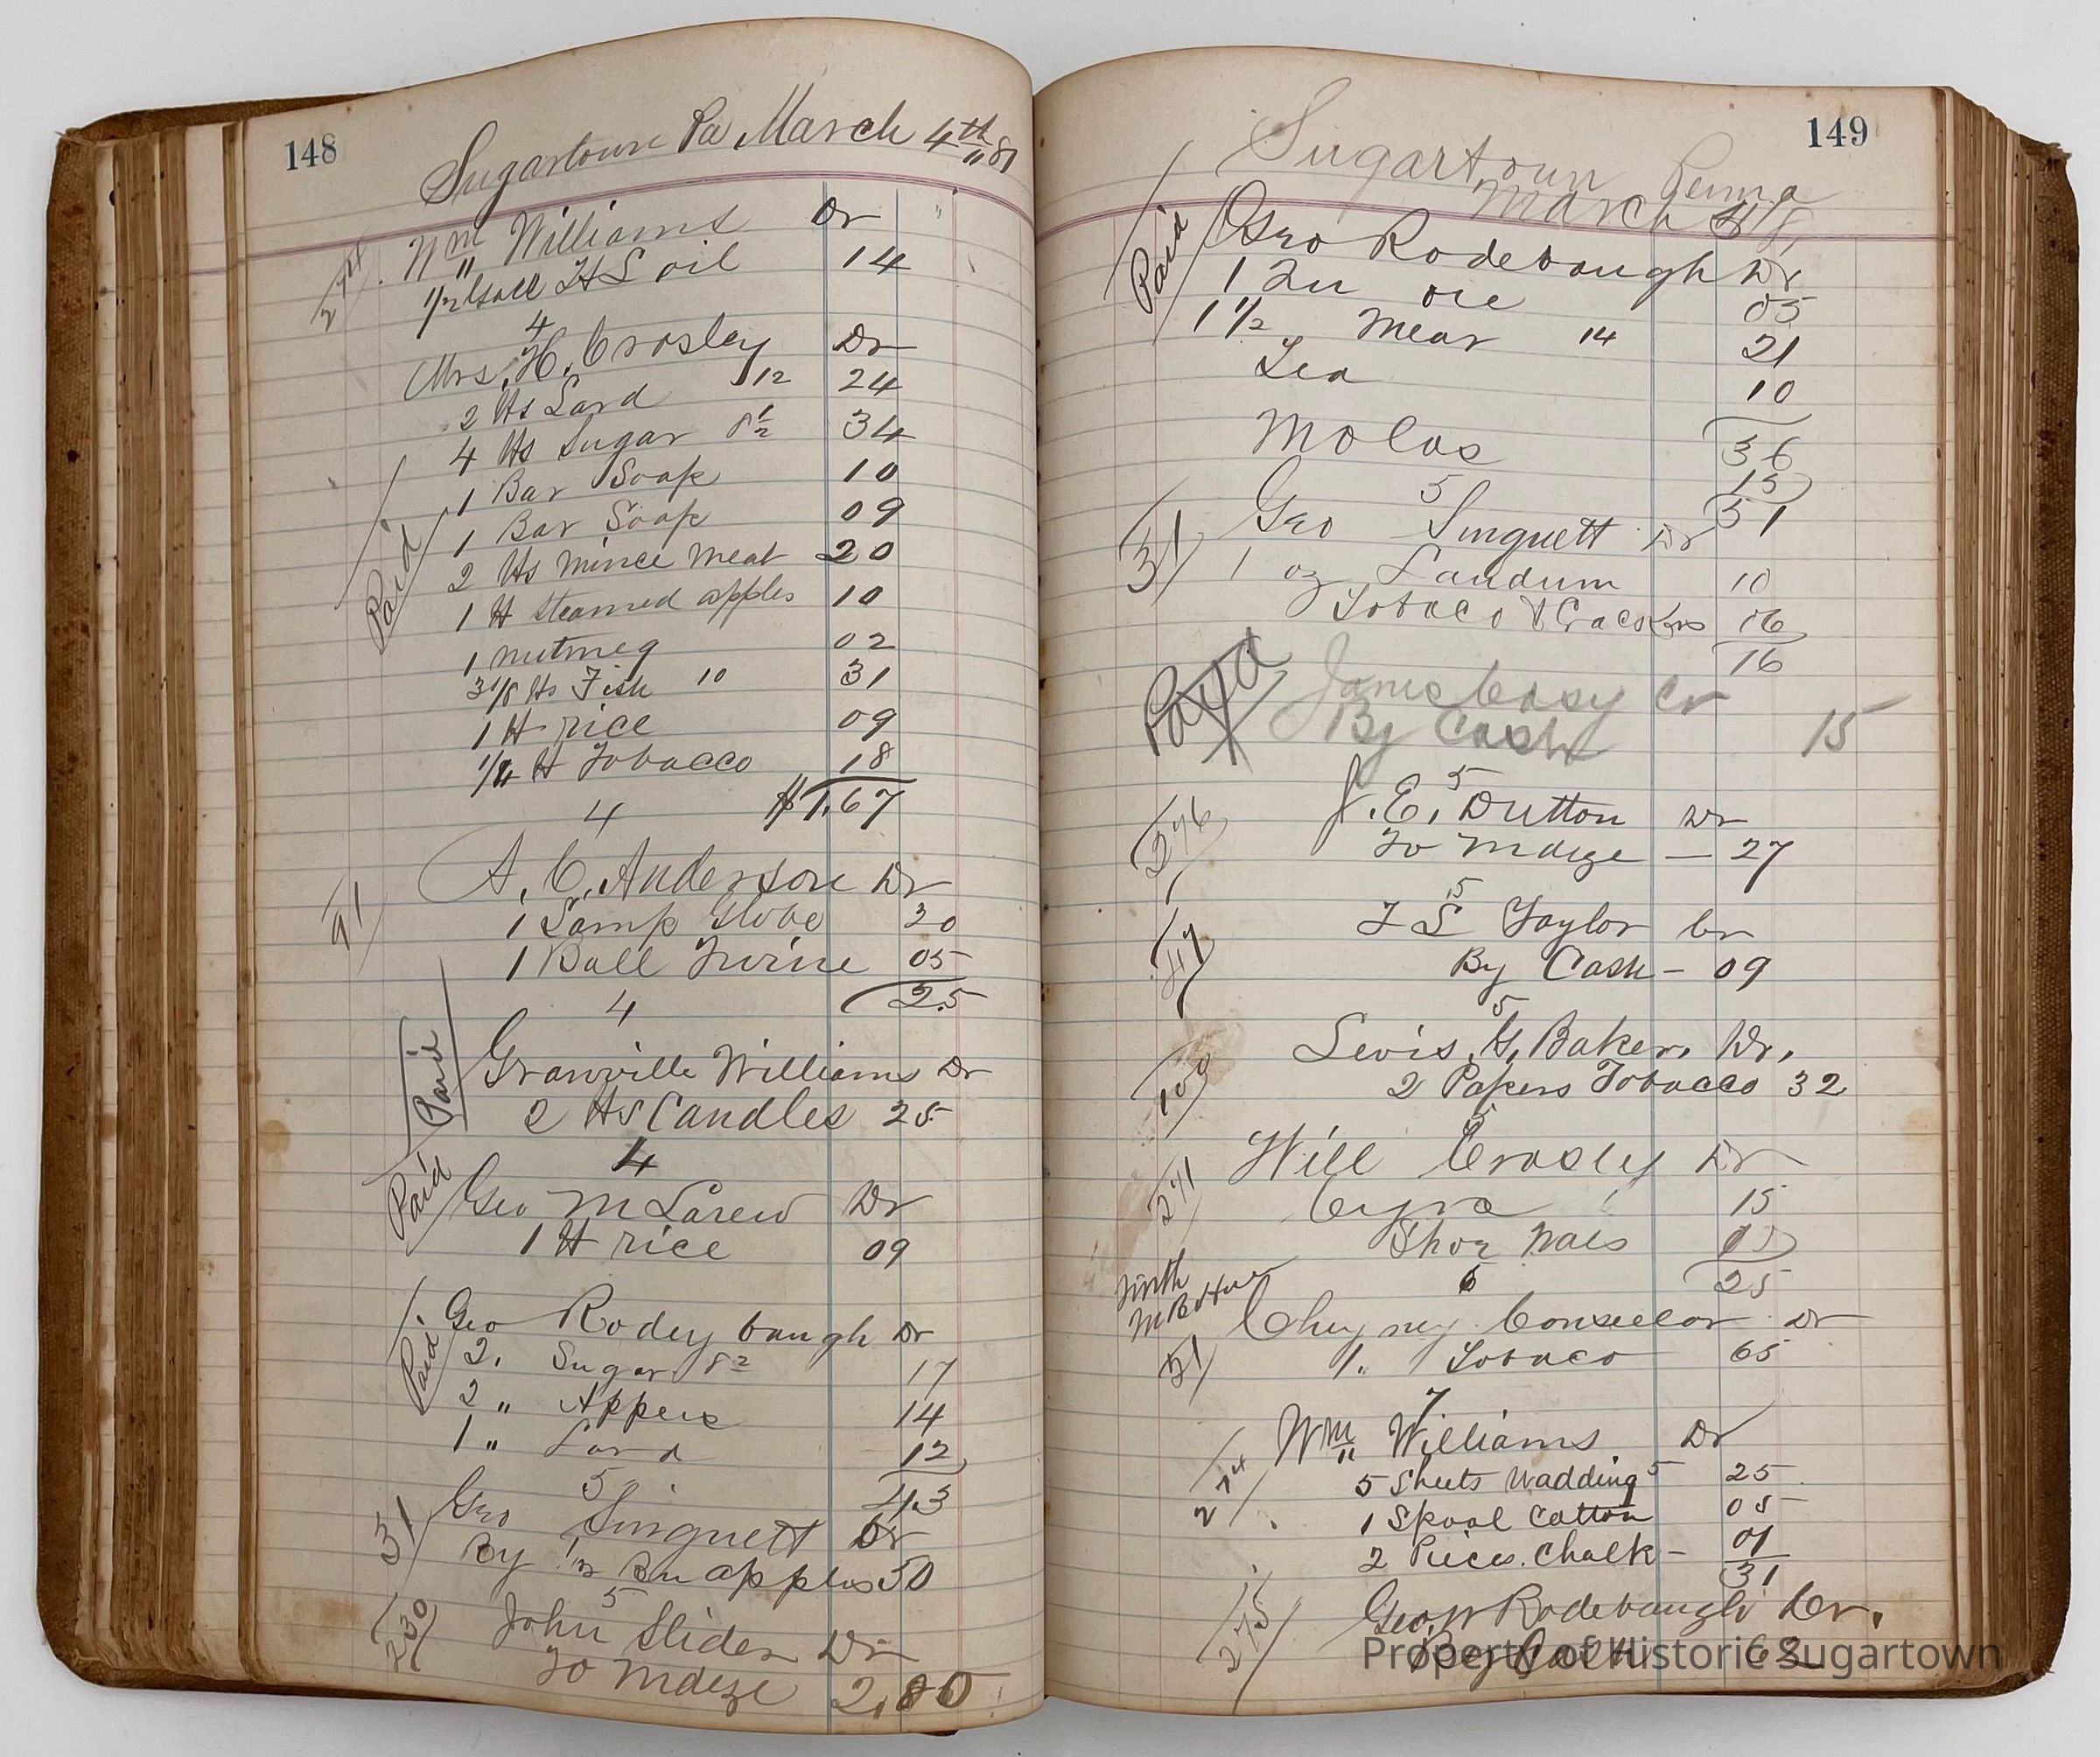 148
Sugartown Pa March 4th "81
274 Wm Williams Dr
1/2 Gall H S oil 14
4
Mrs. H. Crosley Dr
2 lbs Lard 12 24
4 lbs Sugar 8 1/2 34
1 Bar Soap 10
1 Bar Soap 09
Paid
2 lbs mince meat 20
1 lb steamed apples 10
1 nutmeg 02
3 1/8 lbs Fish 10 31
1 lb rice 09
1/4 lb Tobacco 18
4 $1.67
91 A. C. Anderson Dr
1 Lamp Globe 20
1 Ball Twine 05
4 25
Paid Granville Williams Dr
2 lbs Candles 25
4
Paid Geo M Larew Dr
1 lb rice 09
Paid Geo Rodeybaugh Dr
2. Sugar 8 2 17
2 " Appels 14
1 " Lard 12
5 43
31 Geo Singuett Cr
By 1/2 Bu apples 50
5
230 John Slider Dr
To Mdize 2,80
149
Sugartown Penna
March 81
Paid Geo Rodebaugh Dr
1 Qu 05
1 1/2 Meat 14 21
Tea 10
36
Molas 15
5 51
31 Geo Singuett Dr
1 oz Laudum 10
Tobaco & Crackers 06
16
Paid James Casy Cr
By Cash 15
5
276 J. E. Dutton Dr
To Mdize — 27
5
J S Taylor Cr
By Cash - 09
5
100 Lewis G. Baker. Dr.
2 Papers Tobacco 32
5
271 Will Crosly Dr
15
Shoe Nails
6 25
Chey ney Conseelor Dr
51 1.. Tobaco 65
7
274 Wm Williams Dr
5 Sheets Wadding 5 25
1 Spool Cotton 05
2 Pieces. Chalk - 01
31
275 Geo W Rodebaugh Cr.
By Cash 62
Property of Historic Sugartown